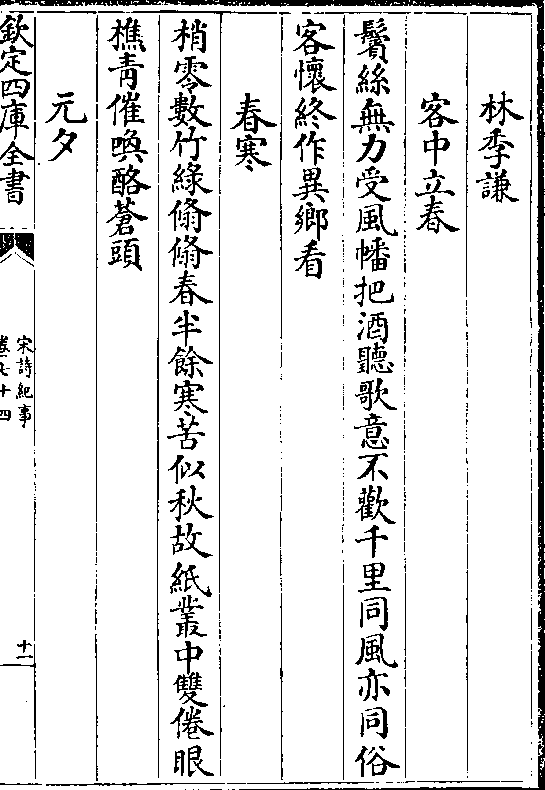 林季謙
客中立春
鬢絲無力受風幡把酒聽歌意不歡千里同風亦同俗
客懷終作異鄉看
春寒
梢零數竹綠翛翛春半餘寒苦似秋故紙叢中雙倦眼
樵青催喚酪蒼頭
元夕
欽定四庫全書
宋詩紀事
卷七十四
十一